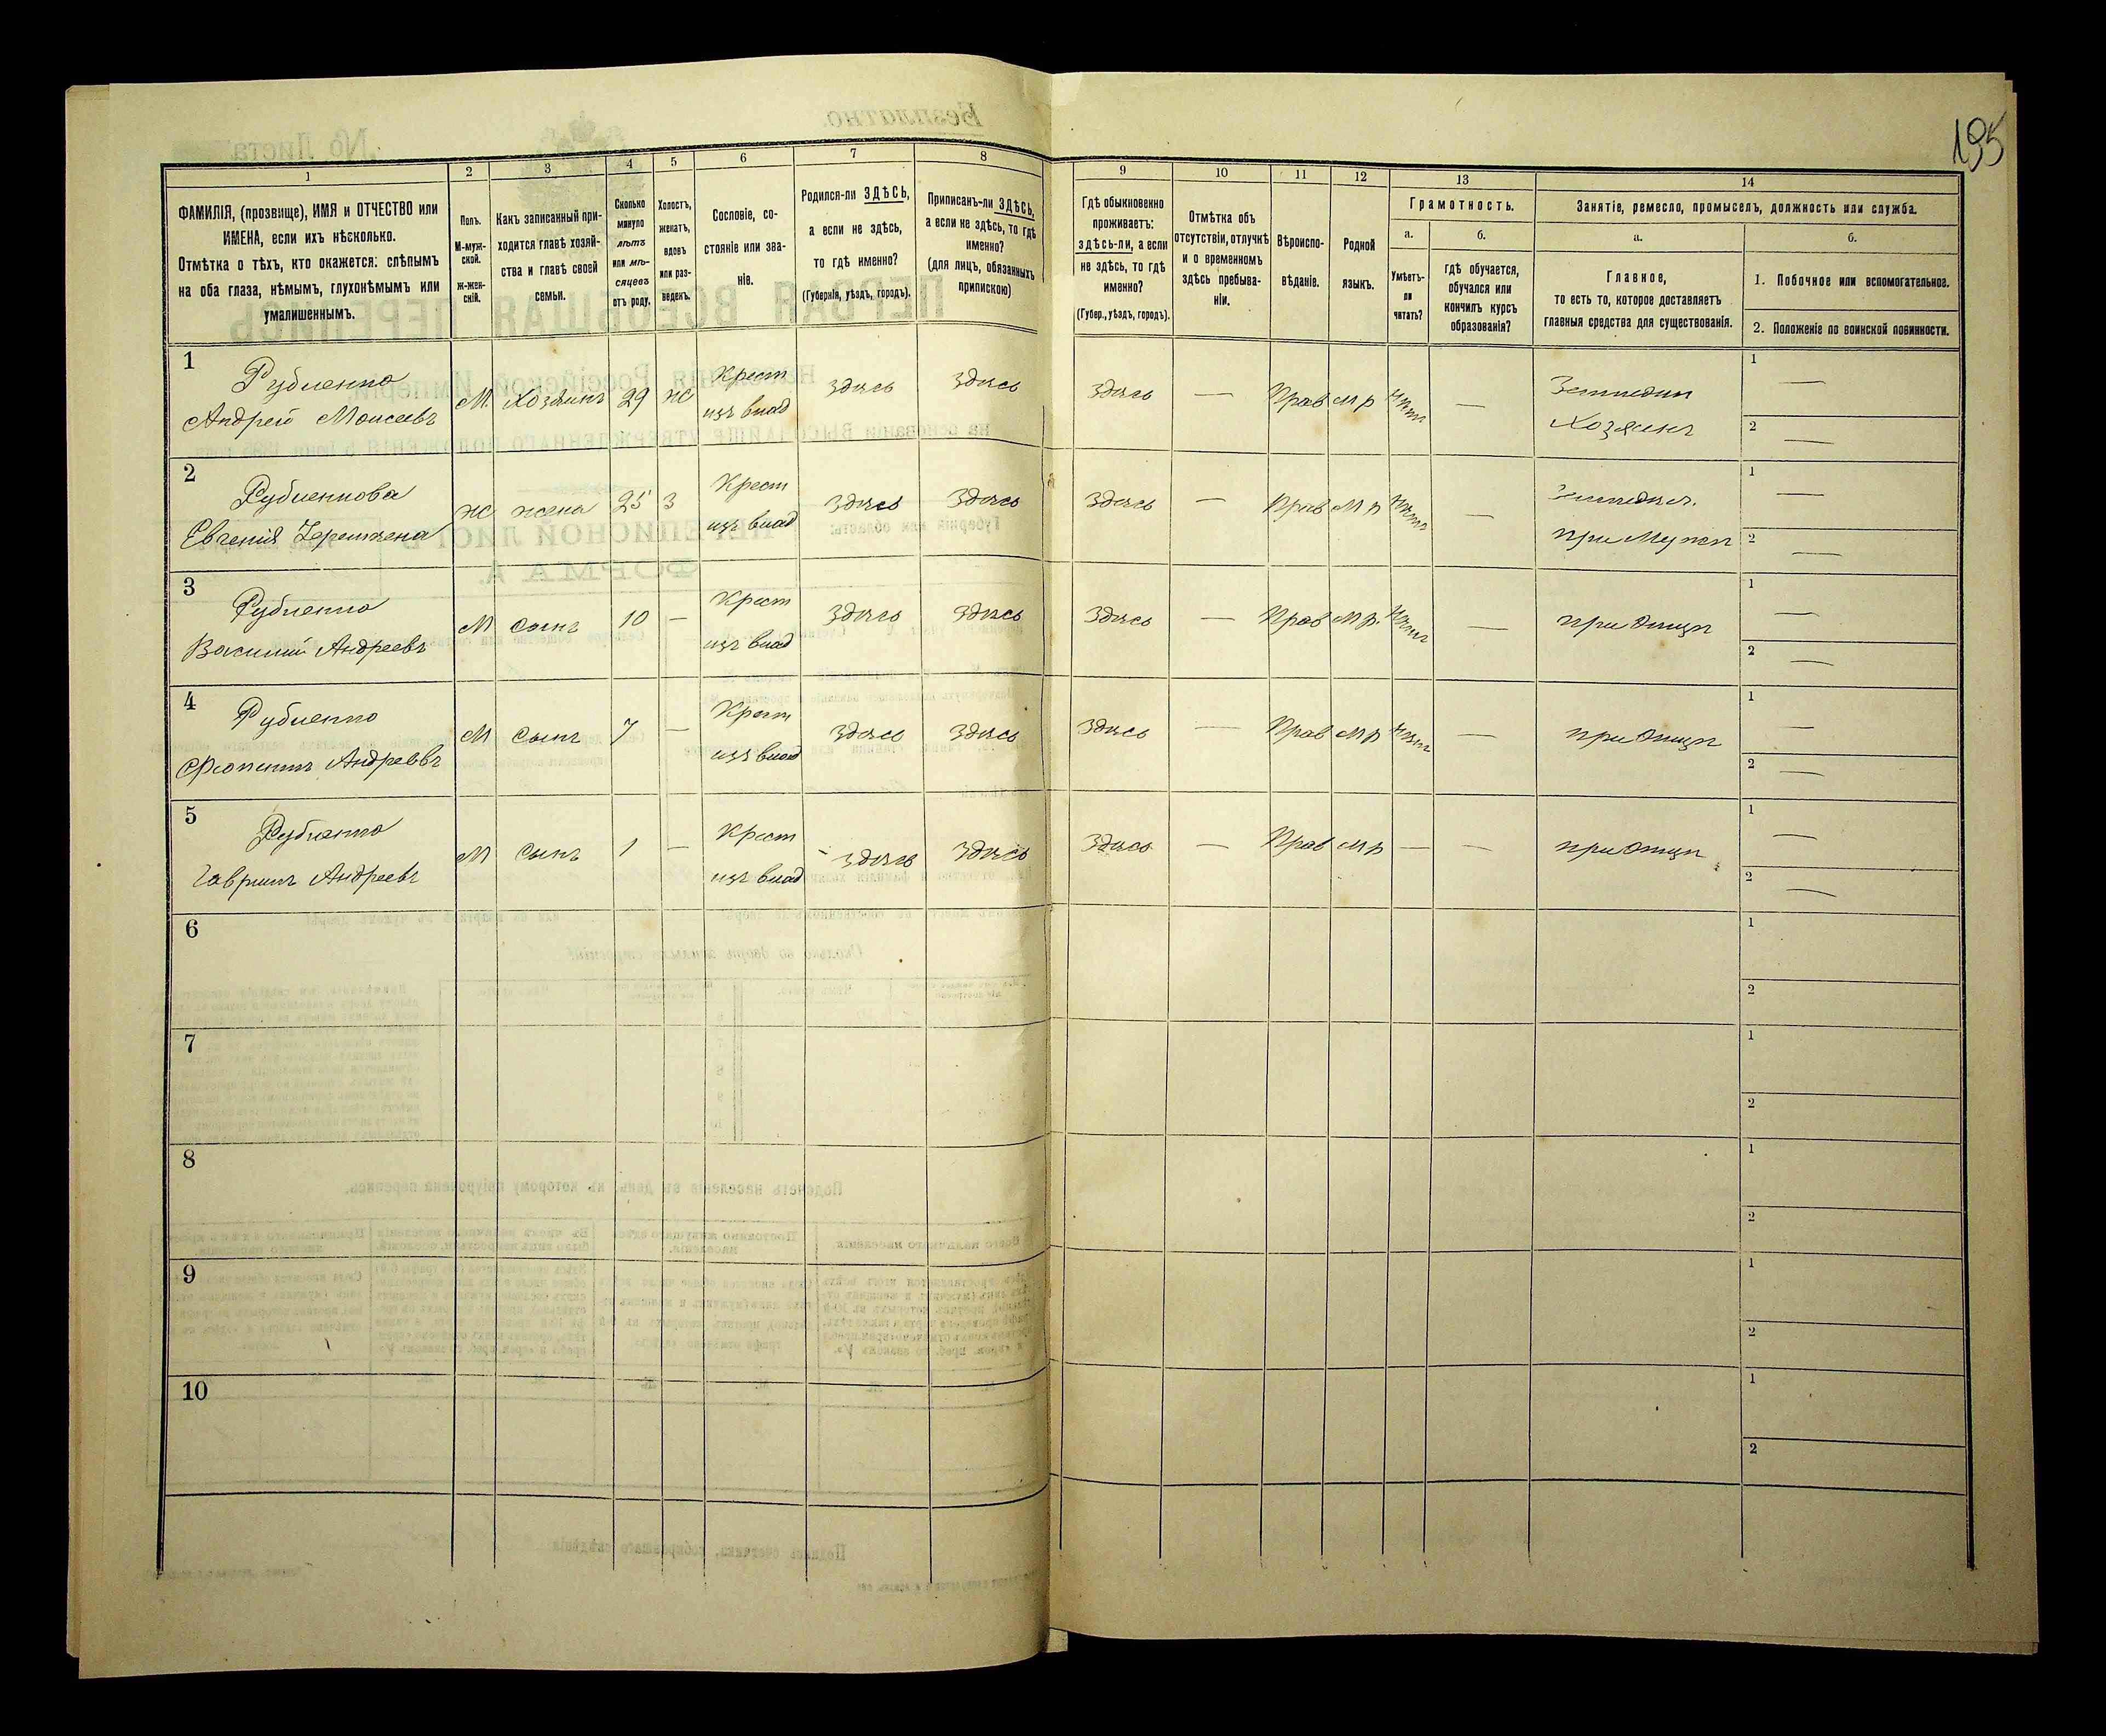 195
1
2
3
4
5
6
7
8
9
10
11
12
13
14
ФАМИЛІЯ, (прозвище), ИМЯ и ОТЧЕСТВО или
ИМЕНА, если ихъ нѣсколько.
Отмѣтка о тѣхъ, кто окажется: слѣпымъ
на оба глаза, нѣмымъ, глухонѣмымъ или
умалишеннымъ.
Полъ.
М-муж-
ской.
Ж-жен-
скій.
Какъ записанный при-
ходится главѣ хозяй-
ства и главѣ своей
семьи.
Сколько
минуло
лѣтъ
или мѣ-
сяцевъ
отъ роду.
Холостъ,
женатъ,
вдовъ
или раз-
веденъ.
Сословіе, со-
стояніе или зва-
ніе.
Родился-ли ЗДѢСЬ,
а если не здѣсь,
то гдѣ именно?
(Губернія, уѣздъ, городъ).
Приписанъ-ли ЗДѢСЬ,
а если не здѣсь, то гдѣ
именно?
(для лицъ, обязанныхъ
припискою)
Гдѣ обыкновенно
проживаетъ:
здѣсь-ли, а если
не здѣсь, то гдѣ
именно?
(Губер., уѣздъ, городъ).
Отмѣтка объ
отсутствіи, отлучкѣ
и о временномъ
здѣсь пребыва-
ніи.
Вѣроиспо-
вѣданіе.
Родной
языкъ.
Грамотность.
а.
Умѣетъ-
ли
читать?
б.
гдѣ обучается,
обучался или
кончилъ курсъ
образованія?
Занятіе, ремесло, промыселъ, должность или служба.
а.
Главное,
то есть то, которое доставляетъ
главныя средства для существованія.
б.
1. Побочное или вспомогательное.
2. Положеніе по воинской повинности.
1
Рубленко
Андрей Моисеевъ
М. Хозяинъ 29 Ж
Крест
изъ влад
здѣсь здѣсь здѣсь — Прав М р Нѣтъ —
Земледѣл
Хозяинъ
1 —
2 —
2
Рубленкова
Евгенія
Ж жена 25 З
Крест
изъ влад
здѣсь здѣсь здѣсь — Прав М р Нѣтъ —
Земледѣл.
при Мужѣ
1 —
2 —
3
Рубленко
Василий Андреевъ
М сынъ 10 —
Крест
изъ влад
здѣсь здѣсь здѣсь — Прав М р. Нѣтъ —
при Отцѣ
1 —
2 —
4
Рубленко
Андреевъ
М сынъ 7 —
Крест
изъ влад
здѣсь здѣсь здѣсь — Прав М р Нѣтъ —
при Отцѣ
1 —
2 —
5
Рубленко
Гаврилъ Андреевъ
М сынъ 1 —
Крест
изъ влад
здѣсь здѣсь здѣсь — Прав М р — —
при Отцѣ
1 —
2 —
6
1
2
7
1
2
8
1
2
9
1
2
10
1
2